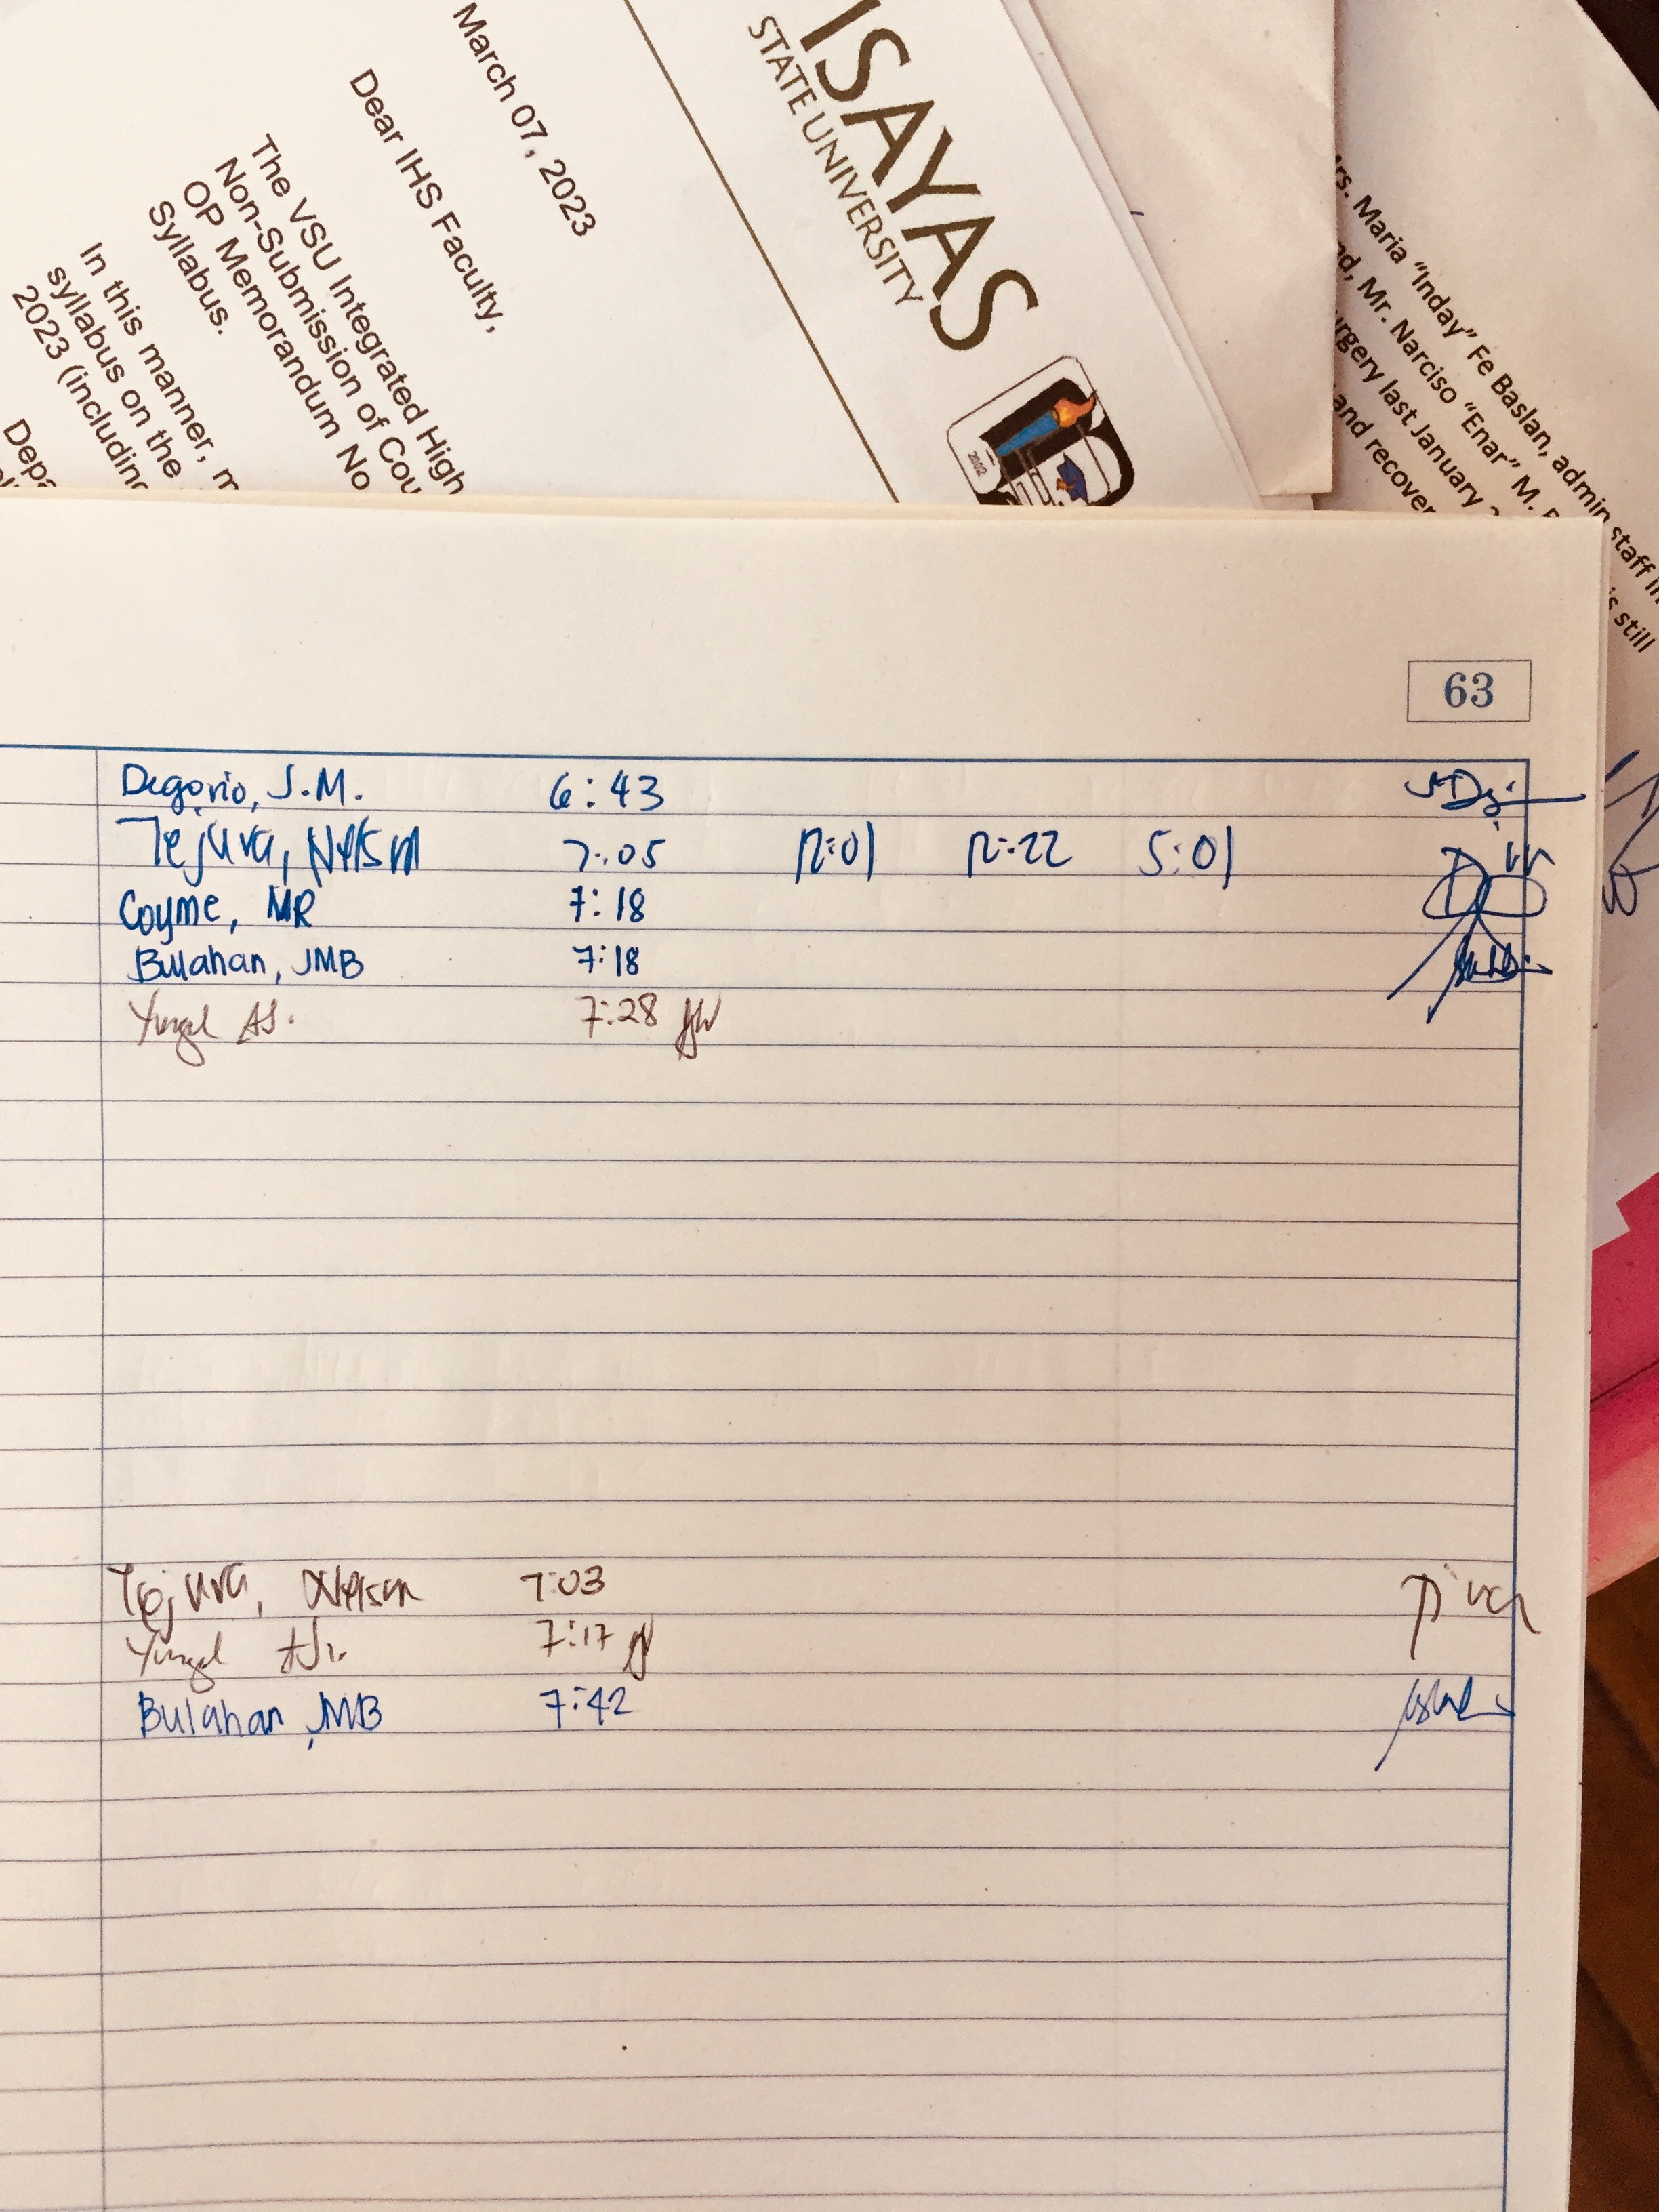 ISAYAS
STATE UNIVERSITY
March 07, 2023
Dear IHS Faculty,
The VSU Integrated High
Non-Submission of Cou
OP Memorandum No
Syllabus.
In this manner, m
syllabus on the
2023 (including
Depa
rs. Maria “Inday” Fe Baslan, admin staff in
nd, Mr. Narciso “Enar” M. B
urgery last January 2
and recover
s still
2002
63
Degorio, J.M. 6:43
Tejura, Nelson 7:05 12:01 12:22 5:01
Coyme, MR 7:18
Bulahan, JMB 7:18
7:28
Tejura, Nelson 7:03
7:17
Bulahan, JMB 7:42